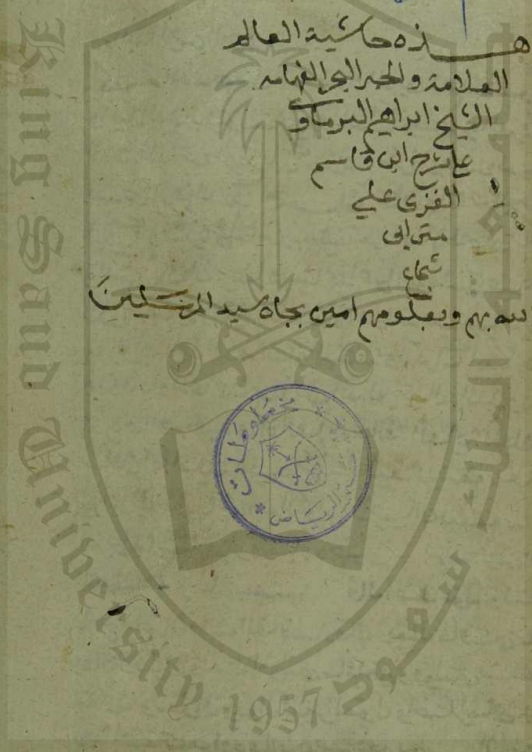 هذه حاشية العالم
العلامة والحبر البحر الفهامه
الشيخ ابراهيم البرماوي
على شرح ابن قاسم
الغزي علي
متن ابى
شجاع
بهم وبعلومهم امين بجاه سيد المرسلين
مخطوطات
الرياض
King Saud University
1957